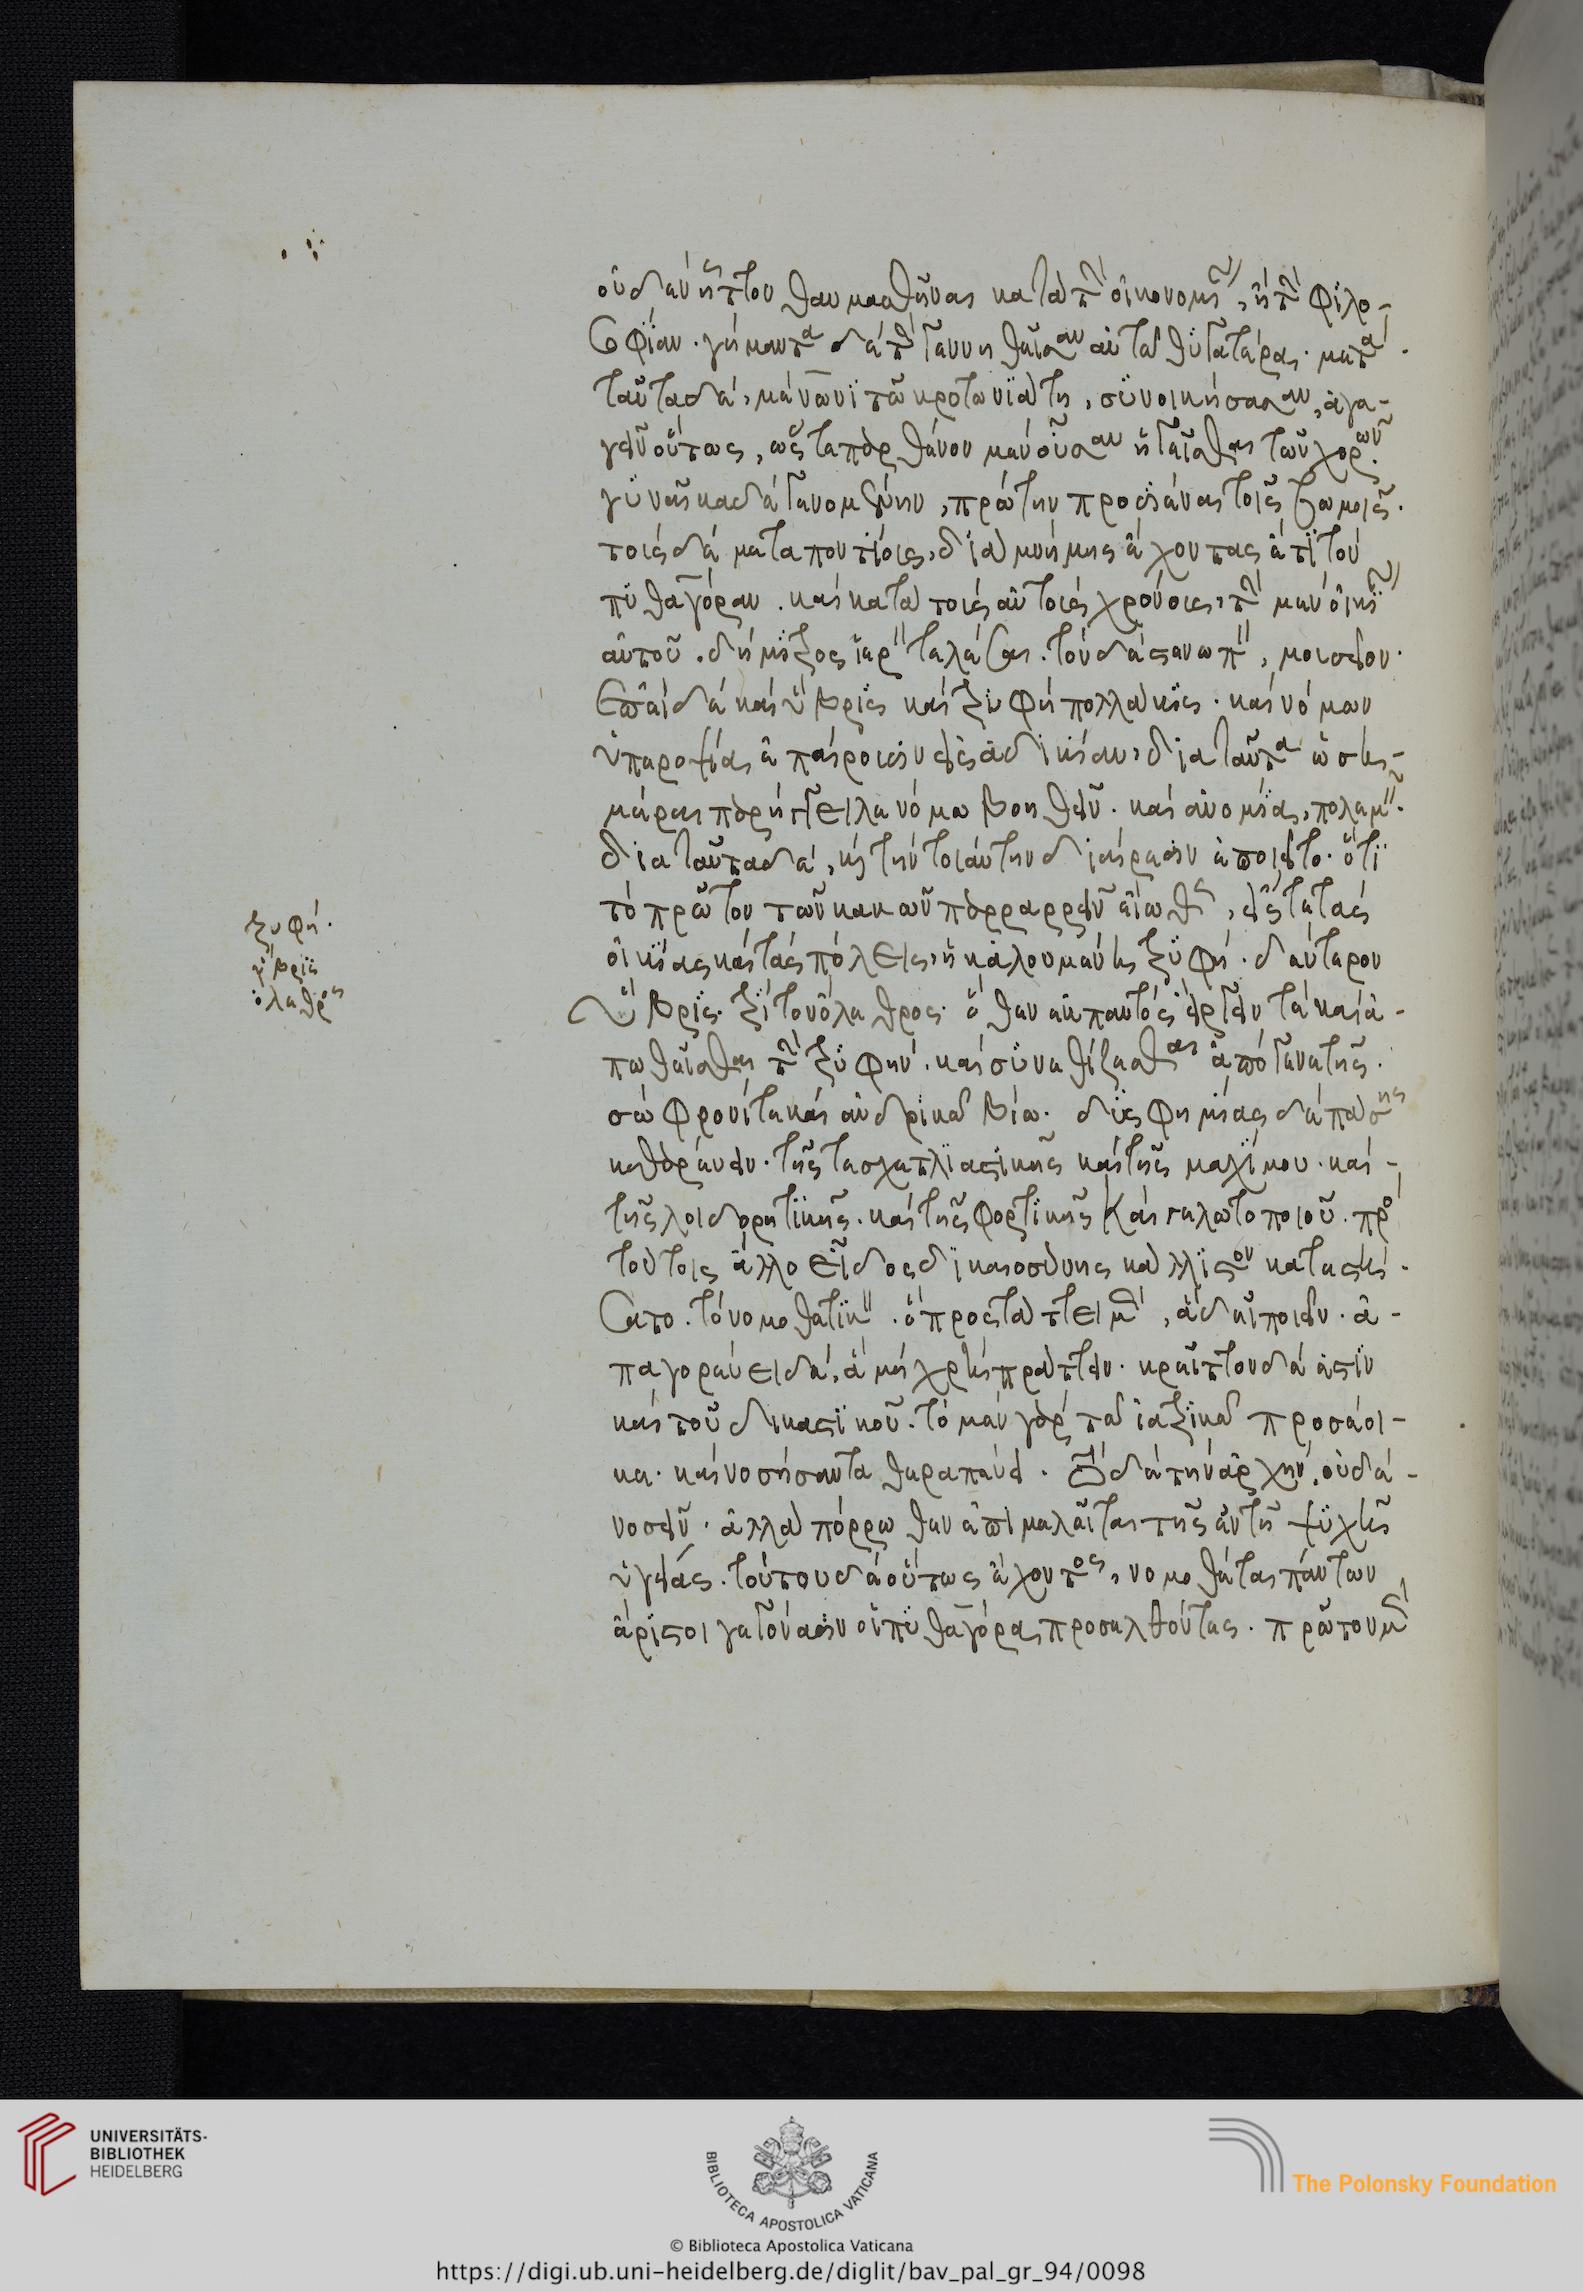 οὐδὲν ἧττον θαυμασθῆναι κατὰ τὴν οἰκονομίαν, ἢ τὴν φιλο-
σοφίαν. γήμαντα δὲ τὴν γεννηθεῖσαν αὐτῶ θυγατέρα. μετὰ
ταῦτα δὲ, μένωνι τῶ κροτωνιάτη, συνοικήσασαν, ἀγα-
γεῖν οὕτως, ὥστε παρθένον μὲν οὖσαν ἡγεῖσθαι τῶν χορῶν.
γυναῖκα δὲ γενομένην, πρώτην προσιέναι τοῖς βωμοῖς.
τοὺς δὲ μεταποντίους, διὰ μνήμης ἔχοντας ἔτι τὸν
πυθαγόραν. καὶ κατὰ τοὺς αὐτοὺς χρόνους, τὴν μὲν οἰκίαν
αὐτοῦ. δήμητρος ἱερὸν τελέσαι. τὸν δὲ στενωπὸν, μουσεῖον.
ἐπεὶ δὲ καὶ ὕβρις καὶ τρυφὴ πολλάκις. καὶ νόμων
ὑπεροψία ἐπαίρουσιν εἰς ἀδικίαν, διὰ ταῦτα ὁση-
μέραι παρήγγειλε νόμω βοηθεῖν. καὶ ἀνομία, πολεμεῖν.
διὰ ταῦτα δὲ, καὶ τὴν τοιαύτην διαίρεσιν ἐποιεῖτο. ὅτι
τὸ πρῶτον τῶν κακῶν παραρρεῖν εἴωθεν, εἴς τε τὰς
οἰκίας καὶ τὰς πόλεις, ἡ καλουμένη τρυφή. δεύτερον
ὕβρις. τρίτον ὄλεθρος. ὅθεν ἐκ παντὸς εἴργειν τε καὶ ἀ-
πωθεῖσθαι τὴν τρυφήν. καὶ συνεθίζεσθαι ἀπὸ γενετῆς.
σώφρονί τε καὶ ἀνδρικῶ βίω. δυσφημίας δὲ πάσης
καθαρεύειν. τῆς τε σχετλιαστικῆς καὶ τῆς μαχίμου. καὶ
τῆς λοιδορητικῆς. καὶ τῆς φορτικῆς καὶ γελωτοποιοῦ. πρὸς
τούτοις ἄλλο εἶδος δικαιοσύνης κάλλιστον κατεστή-
σατο. τὸ νομοθετικὸν. ὃ προστάττει μὲν, ἃ δεῖ ποιεῖν. ἀ-
παγορεύει δὲ, ἃ μὴ χρὴ πράττειν. κρεῖττον δέ ἐστιν
καὶ τοῦ δικαστικοῦ. τὸ μὲν γὰρ τῶ ἰατρικῶ προσέοι-
κε. καὶ νοσήσαντα θεραπεύει. τὸ δὲ τὴν ἀρχὴν, οὐδὲ
νοσεῖν. ἀλλὰ πόρρωθεν ἐπιμελεῖται τῆς ἐν τῇ ψυχῇ
ὑγείας. τούτου δὲ οὕτως ἔχοντος, νομοθέται πάντων
ἄριστοι γεγόνασιν οἱ πυθαγόρα προσελθόντες. πρῶτον μὲν
τρυφή.
ὕβρις
ὄλεθρος
UNIVERSITÄTS-
BIBLIOTHEK
HEIDELBERG
BIBLIOTECA APOSTOLICA VATICANA
© Biblioteca Apostolica Vaticana
The Polonsky Foundation
https://digi.ub.uni-heidelberg.de/diglit/bav_pal_gr_94/0098